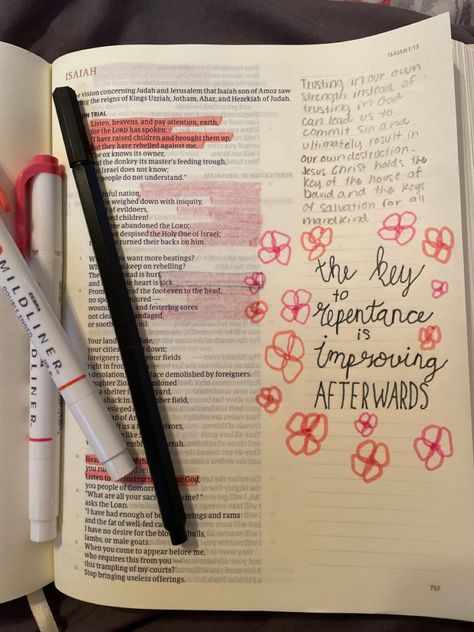 ISAIAH 1:13
ISAIAH
vision concerning Judah and Jerusalem that Isaiah son of Amoz saw
the reigns of Kings Uzziah, Jotham, Ahaz, and Hezekiah of Judah.
ON TRIAL
Listen, heavens, and pay attention, earth,
for the LORD has spoken:
I have raised children and brought them up
they have rebelled against me.
ox knows its owner,
the donkey its master's feeding trough,
Israel does not know;
people do not understand."
nation,
weighed down with iniquity,
evildoers,
children!
abandoned the LORD;
despised the Holy One of Israel;
turned their backs on him.
want more beatings?
keep on rebelling?
head is hurt,
heart is sick.
of the foot even to the head,
no spot
and festering sores
not
or soothed
Your land
your cities
foreigners your fields
right in front
desolation, place demolished by foreigners.
Zion
a shelter in field,
shack in field,
besieged
LORD of
us a few survivors,
Gomorrah.
Hear
you rulers
Listen to God,
you people of Gomorrah
"What are all your to me?"
asks the LORD.
"I have had enough of offerings and rams
and the fat of well-fed
I have no desire for the blood of bulls,
lambs, or male goats.
When you come to appear before me,
who requires this from you —
this trampling of my courts?
Stop bringing useless offerings.
Trusting in our own
strength instead of
trusting in God
can lead us to
commit sin and
ultimately result in
our own destruction.
Jesus Christ holds the
key of the house of
David and the keys
of salvation for all
mandkind
the key
to
repentance
is
improving
AFTERWARDS
MILDLINER
DOUBLE
ZEBRA
MILDLINER
757